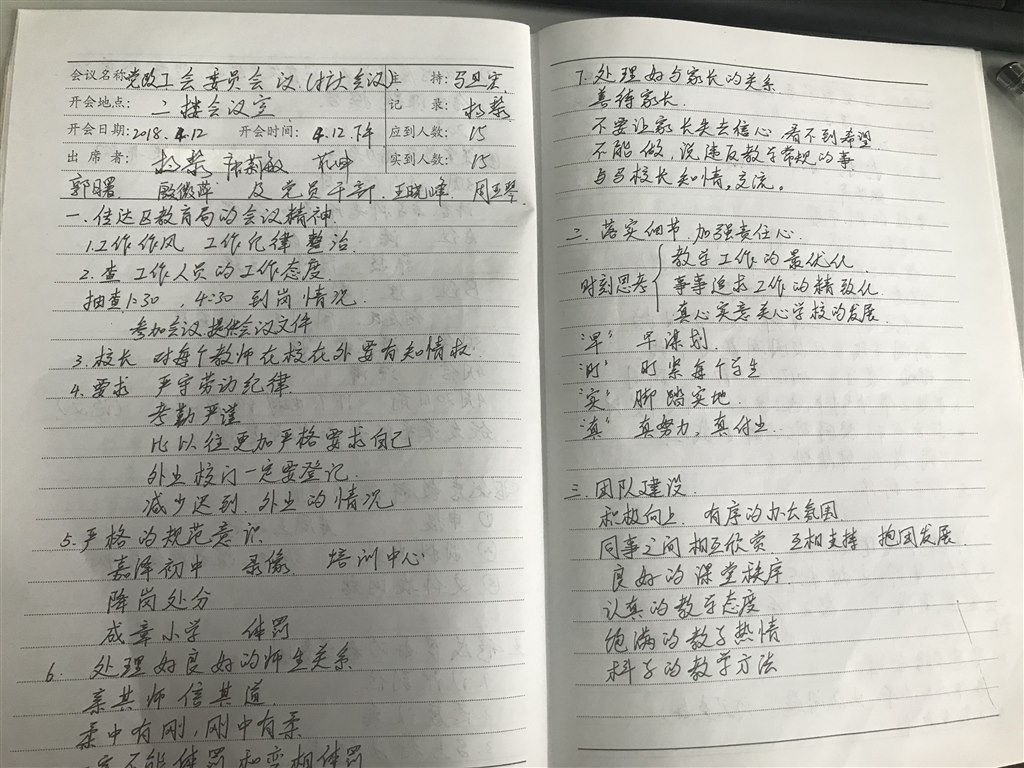 会议名称 党政工会委员会议(扩大会议) 主 持:马旦宏
开会地点: 二楼会议室 记 录: 杨黎
开会日期:2018.4.12 开会时间: 4.12下午 应到人数: 15
出 席 者: 杨黎 范申 实到人数: 15
郭日曙 殷微萍 及党员干部 王晓峰 周玉琴
一.传达区教育局的会议精神
1.工作作风 工作纪律 整治.
2.查 工作人员的工作态度
抽查1:30 , 4:30 到岗情况.
参加会议提供会议文件
3.校长 对每个教师在校在外要有知情权
4.要求 严守劳动纪律
考勤严谨
比以往更加严格要求自己
外出校门一定要登记.
减少迟到.外出的情况
5.严格的规范意识
嘉泽初中 录像 培训中心
降岗处分
成章小学 体罚
6. 处理好良好的师生关系
亲其师 信其道
柔中有刚,刚中有柔
不能体罚和变相体罚
7.处理好与家长的关系
善待家长.
不要让家长失去信心 看不到希望
不能做,说违反教学常规的事
与马校长知情,交流。
二.落实细节 加强责任心.
教学工作的最优化.
时刻思考 事事追求工作的精致化
真心实意关心学校的发展.
"早" 早谋划.
"盯" 盯紧每个学生
"实" 脚踏实地.
"真" 真努力,真付出.
三.团队建设.
积极向上. 有序的办公氛围
同事之间相互欣赏 互相支持 抱团发展.
良好的课堂秩序.
认真的教学态度
饱满的教学热情
科学的教学方法